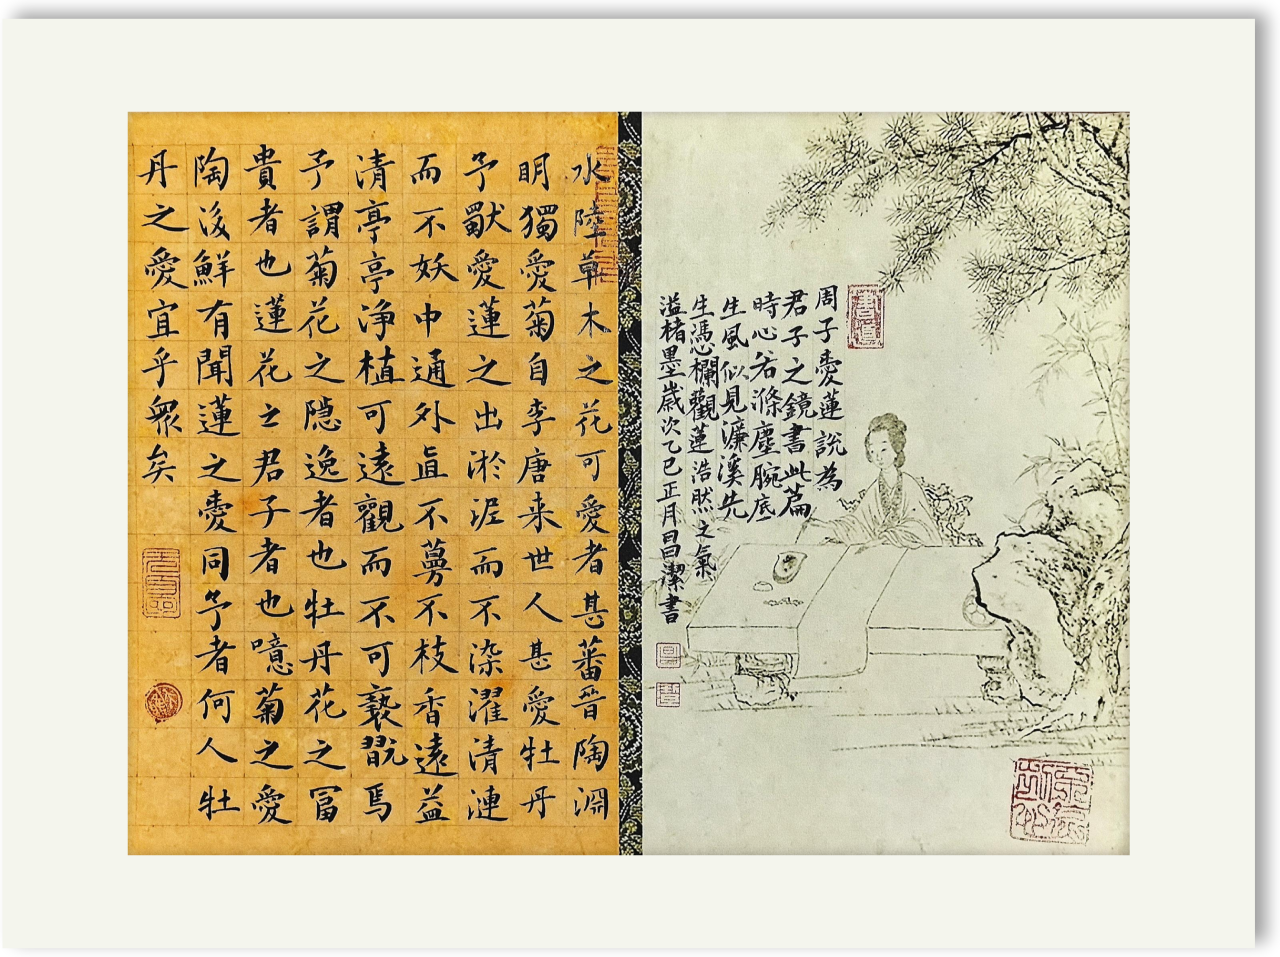 周子愛蓮說為
君子之鏡書此篇
時心若滌塵腕底
生風似見濂溪先
生憑欄觀蓮浩然之氣
溢楮墨歲次乙巳正月昌潔書
水陸草木之花可愛者甚蕃晉陶淵
明獨愛菊自李唐来世人甚愛牡丹
予獸愛蓮之出淤泥而不染濯清漣
而不妖中通外直不蔓不枝香遠益
清亭亭净植可遠觀而不可褻翫焉
予謂菊花之隐逸者也牡丹花之冨
貴者也蓮花之君子者也噫菊之愛
陶後鮮有聞蓮之愛同予者何人牡
丹之愛宜乎眾矣